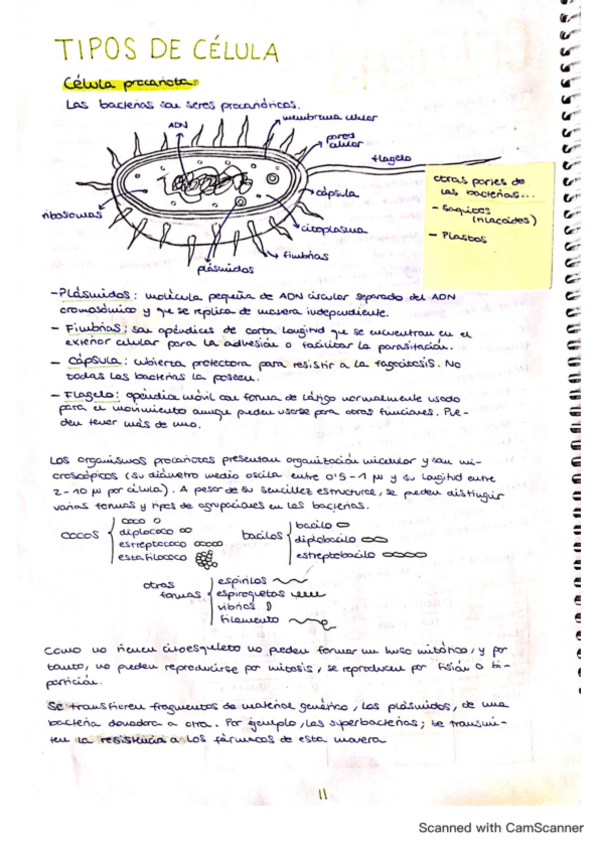 TIPOS DE CÉLULA
Célula procariota
Las bacterias son seres procarióticos.
ADN
membrana celular
pared
celular
flagelo
cápsula
ribosomas
citoplasma
fimbrias
plásmidos
otras partes de
las bacterias...
- Saquitos
(tilacoides)
- Plastos
- Plásmidos: molécula pequeña de ADN circular separado del ADN
cromosómico y que se replica de manera independiente.
- Fimbrias: son apéndices de corta longitud que se encuentran en el
exterior celular para la adhesión o facilitar la parasitación.
- Cápsula: cubierta protectora para resistir a la fagocitosis. No
todas las bacterias la poseen.
- Flagelo: apéndice móvil con forma de látigo normalmente usado
para el movimiento aunque pueden usarse para otras funciones. Pue-
den tener más de uno.
Los organismos procariotas presentan organización unicelular y son mi-
croscópicos (su diámetro medio oscila entre 0'5 - 1 µ y su longitud entre
2 - 10 µ por célula). A pesar de su sencillez estructural, se pueden distinguir
varias formas y tipos de agrupaciones en las bacterias.
cocos
coco
diplococo
estreptococo
estafilococo
bacilos
bacilo
diplobacilo
estreptobacilo
otras
formas
espirilos
espiroquetas
vibrios
filamento
Como no tienen citoesqueleto no pueden formar un huso mitótico, y por
tanto, no pueden reproducirse por mitosis, se reproducen por fisión o bi-
partición.
Se transfieren fragmentos de material genético, los plásmidos, de una
bacteria donadora a otra. Por ejemplo, las superbacterias; se transmi-
ten la resistencia a los fármacos de esta manera
11
Scanned with CamScanner